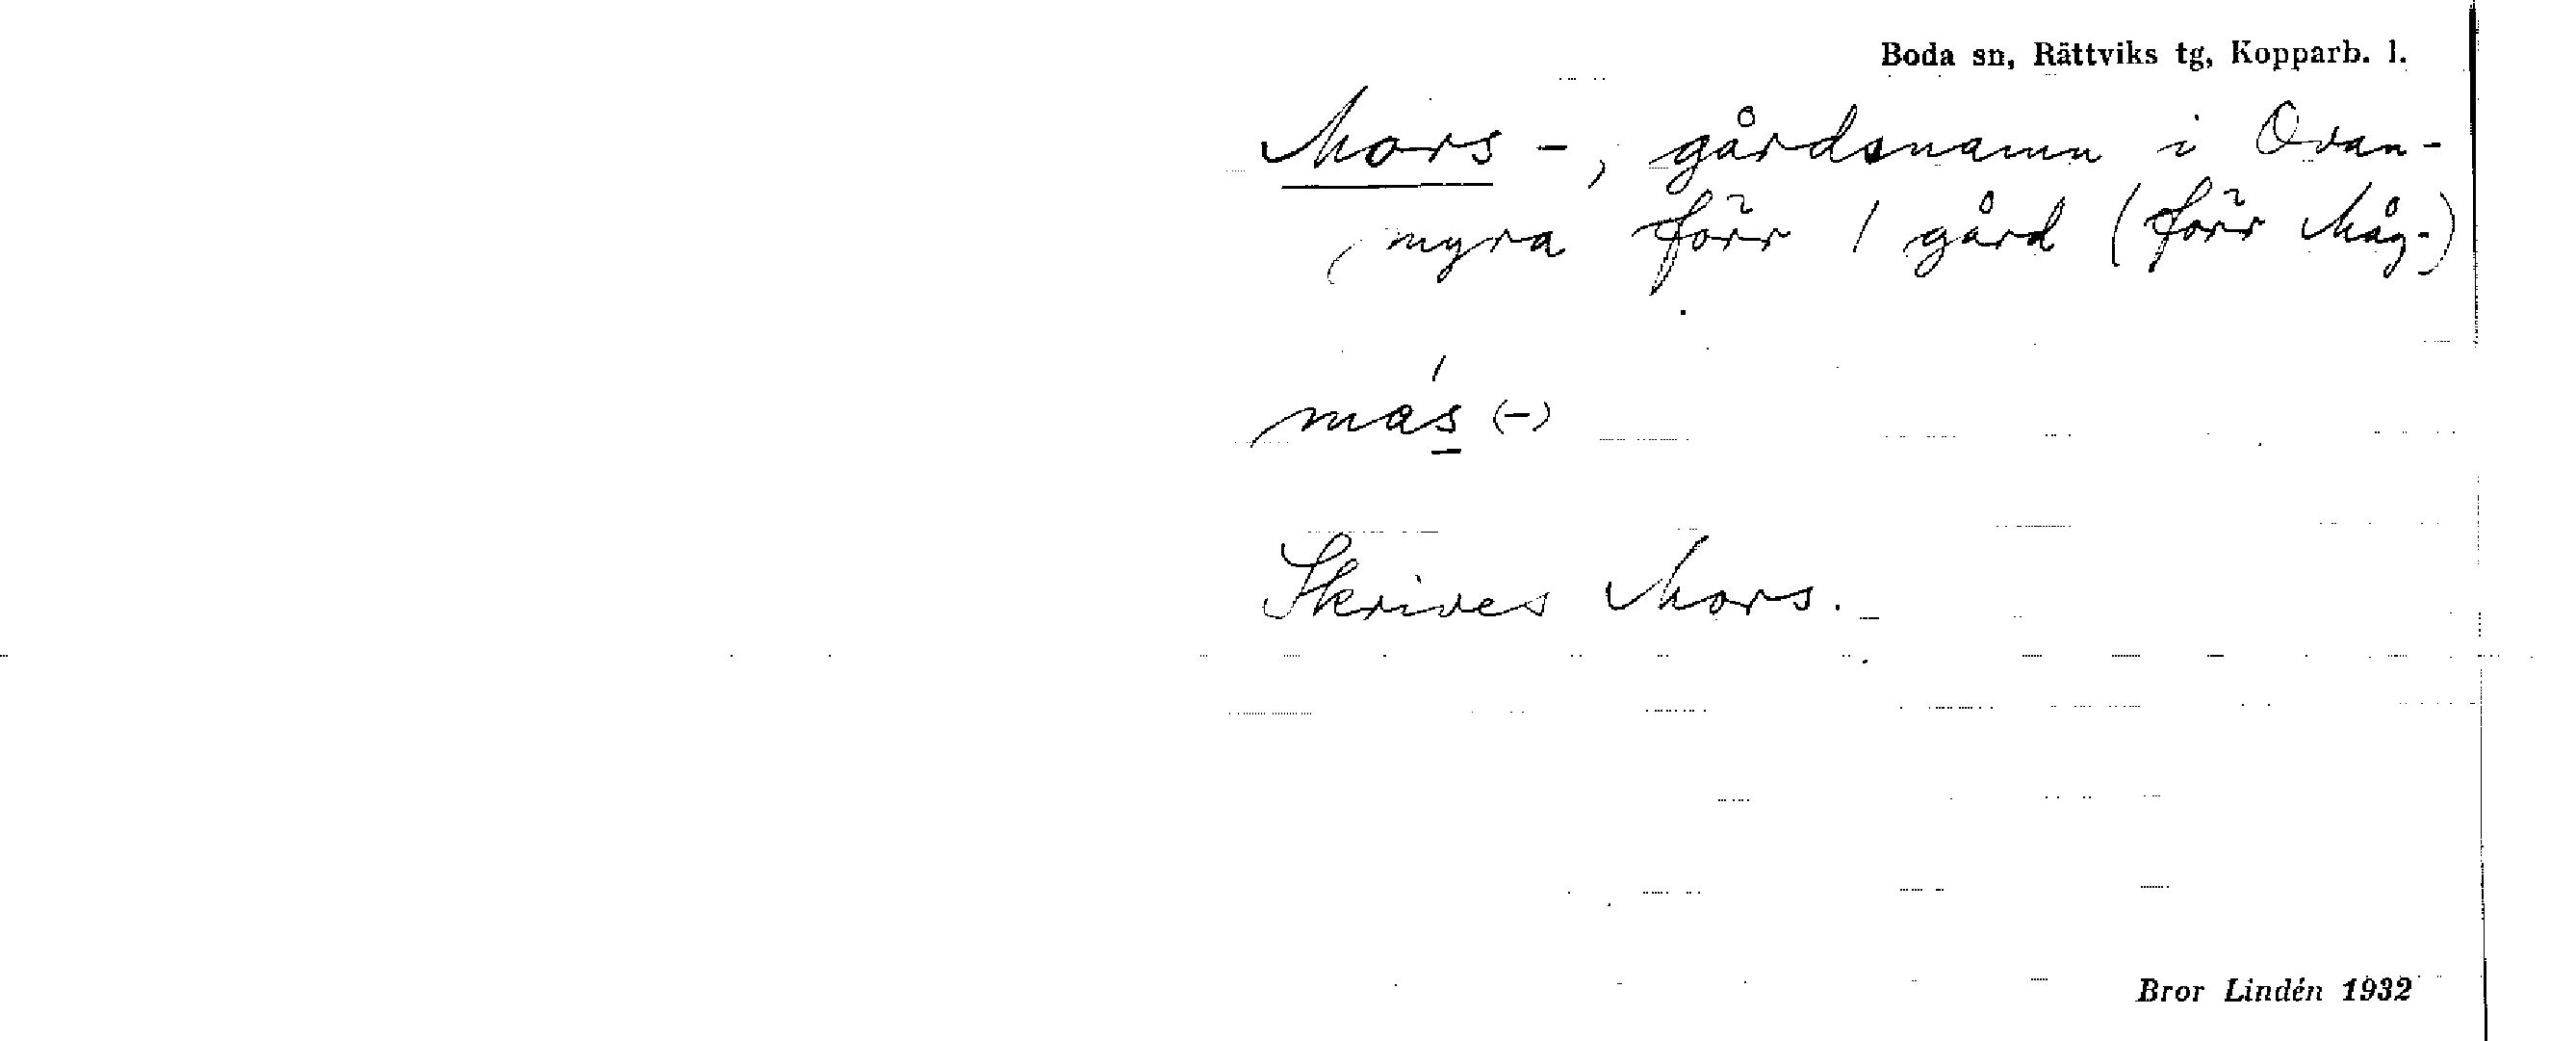 Boda sn, Rättviks tg, Kopparb. l.
Mors-, gårdsnamn i Ovan-
myra förr 1 gård (förr Måg-)
más (-)
Skrives Mors.
Bror Lindén 1932